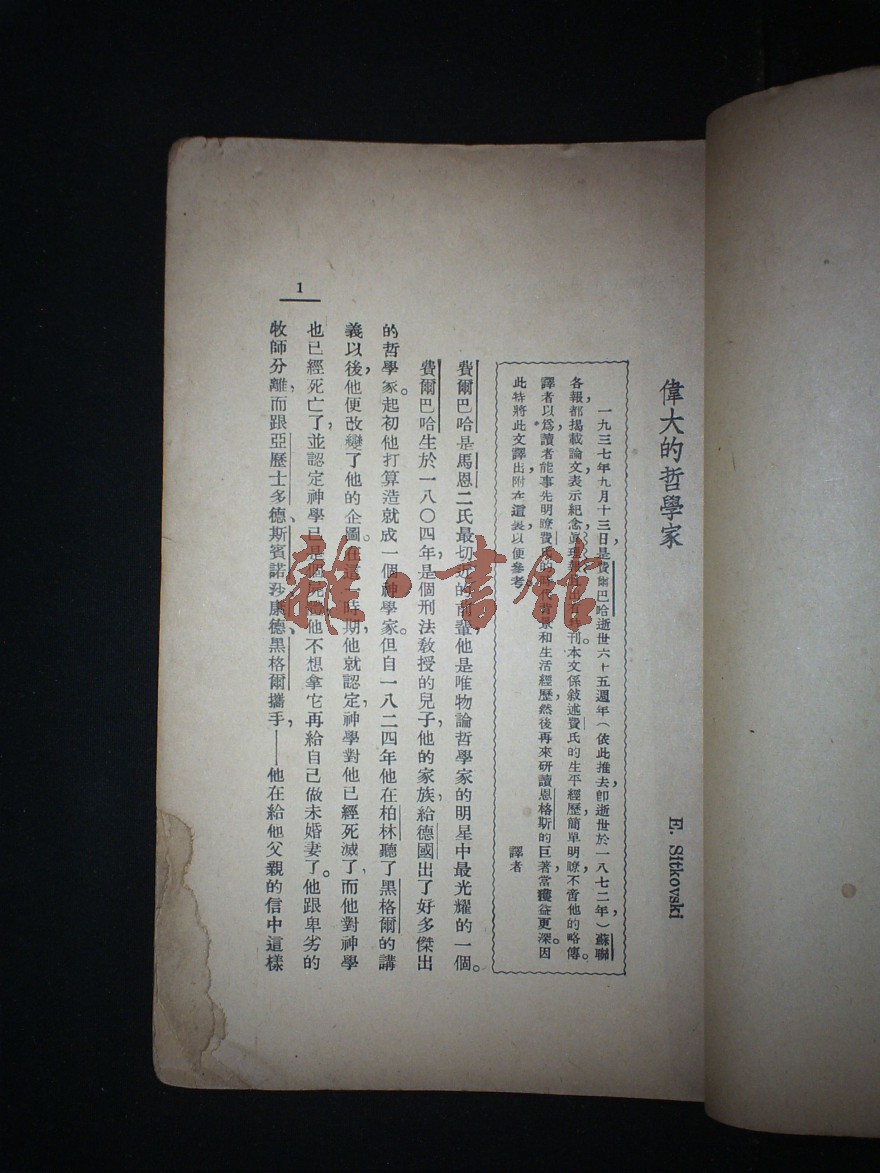 偉大的哲學家
E. Sitkovski
一九三七年九月十三日,是費爾巴哈逝世六十五週年(依此推去,卽逝世於一八七二年,)蘇聯
各報都揭載論文,表示紀念,眞理報特刊。本文係敍述費氏的生平經歷,簡單明瞭,不啻他的略傳。
譯者以爲,讀者能事先明瞭費氏的時代背景和生活經歷,然後再來研讀恩格斯的巨著,當獲益更深。因
此特將此文譯出,附在這裏,以便參考。
譯者
費爾巴哈是馬恩二氏最切近的前輩,他是唯物論哲學家的明星中最光耀的一個。
費爾巴哈生於一八〇四年,是個刑法教授的兒子,他的家族,給德國出了好多傑出
的哲學家。起初他打算造就成一個神學家。但自一八二四年他在柏林聽了黑格爾的講
義以後,他便改變了他的企圖。在這一時期,他就認定,神學對他已經死滅了,而他對神學
也已經死亡了,並認定神學已是個死物,他不想拿它再給自己做未婚妻了。他跟卑劣的
牧師分離,而跟亞歷士多德、斯賓諾莎、康德、黑格爾攜手,——他在給他父親的信中這樣
1
雜·書館